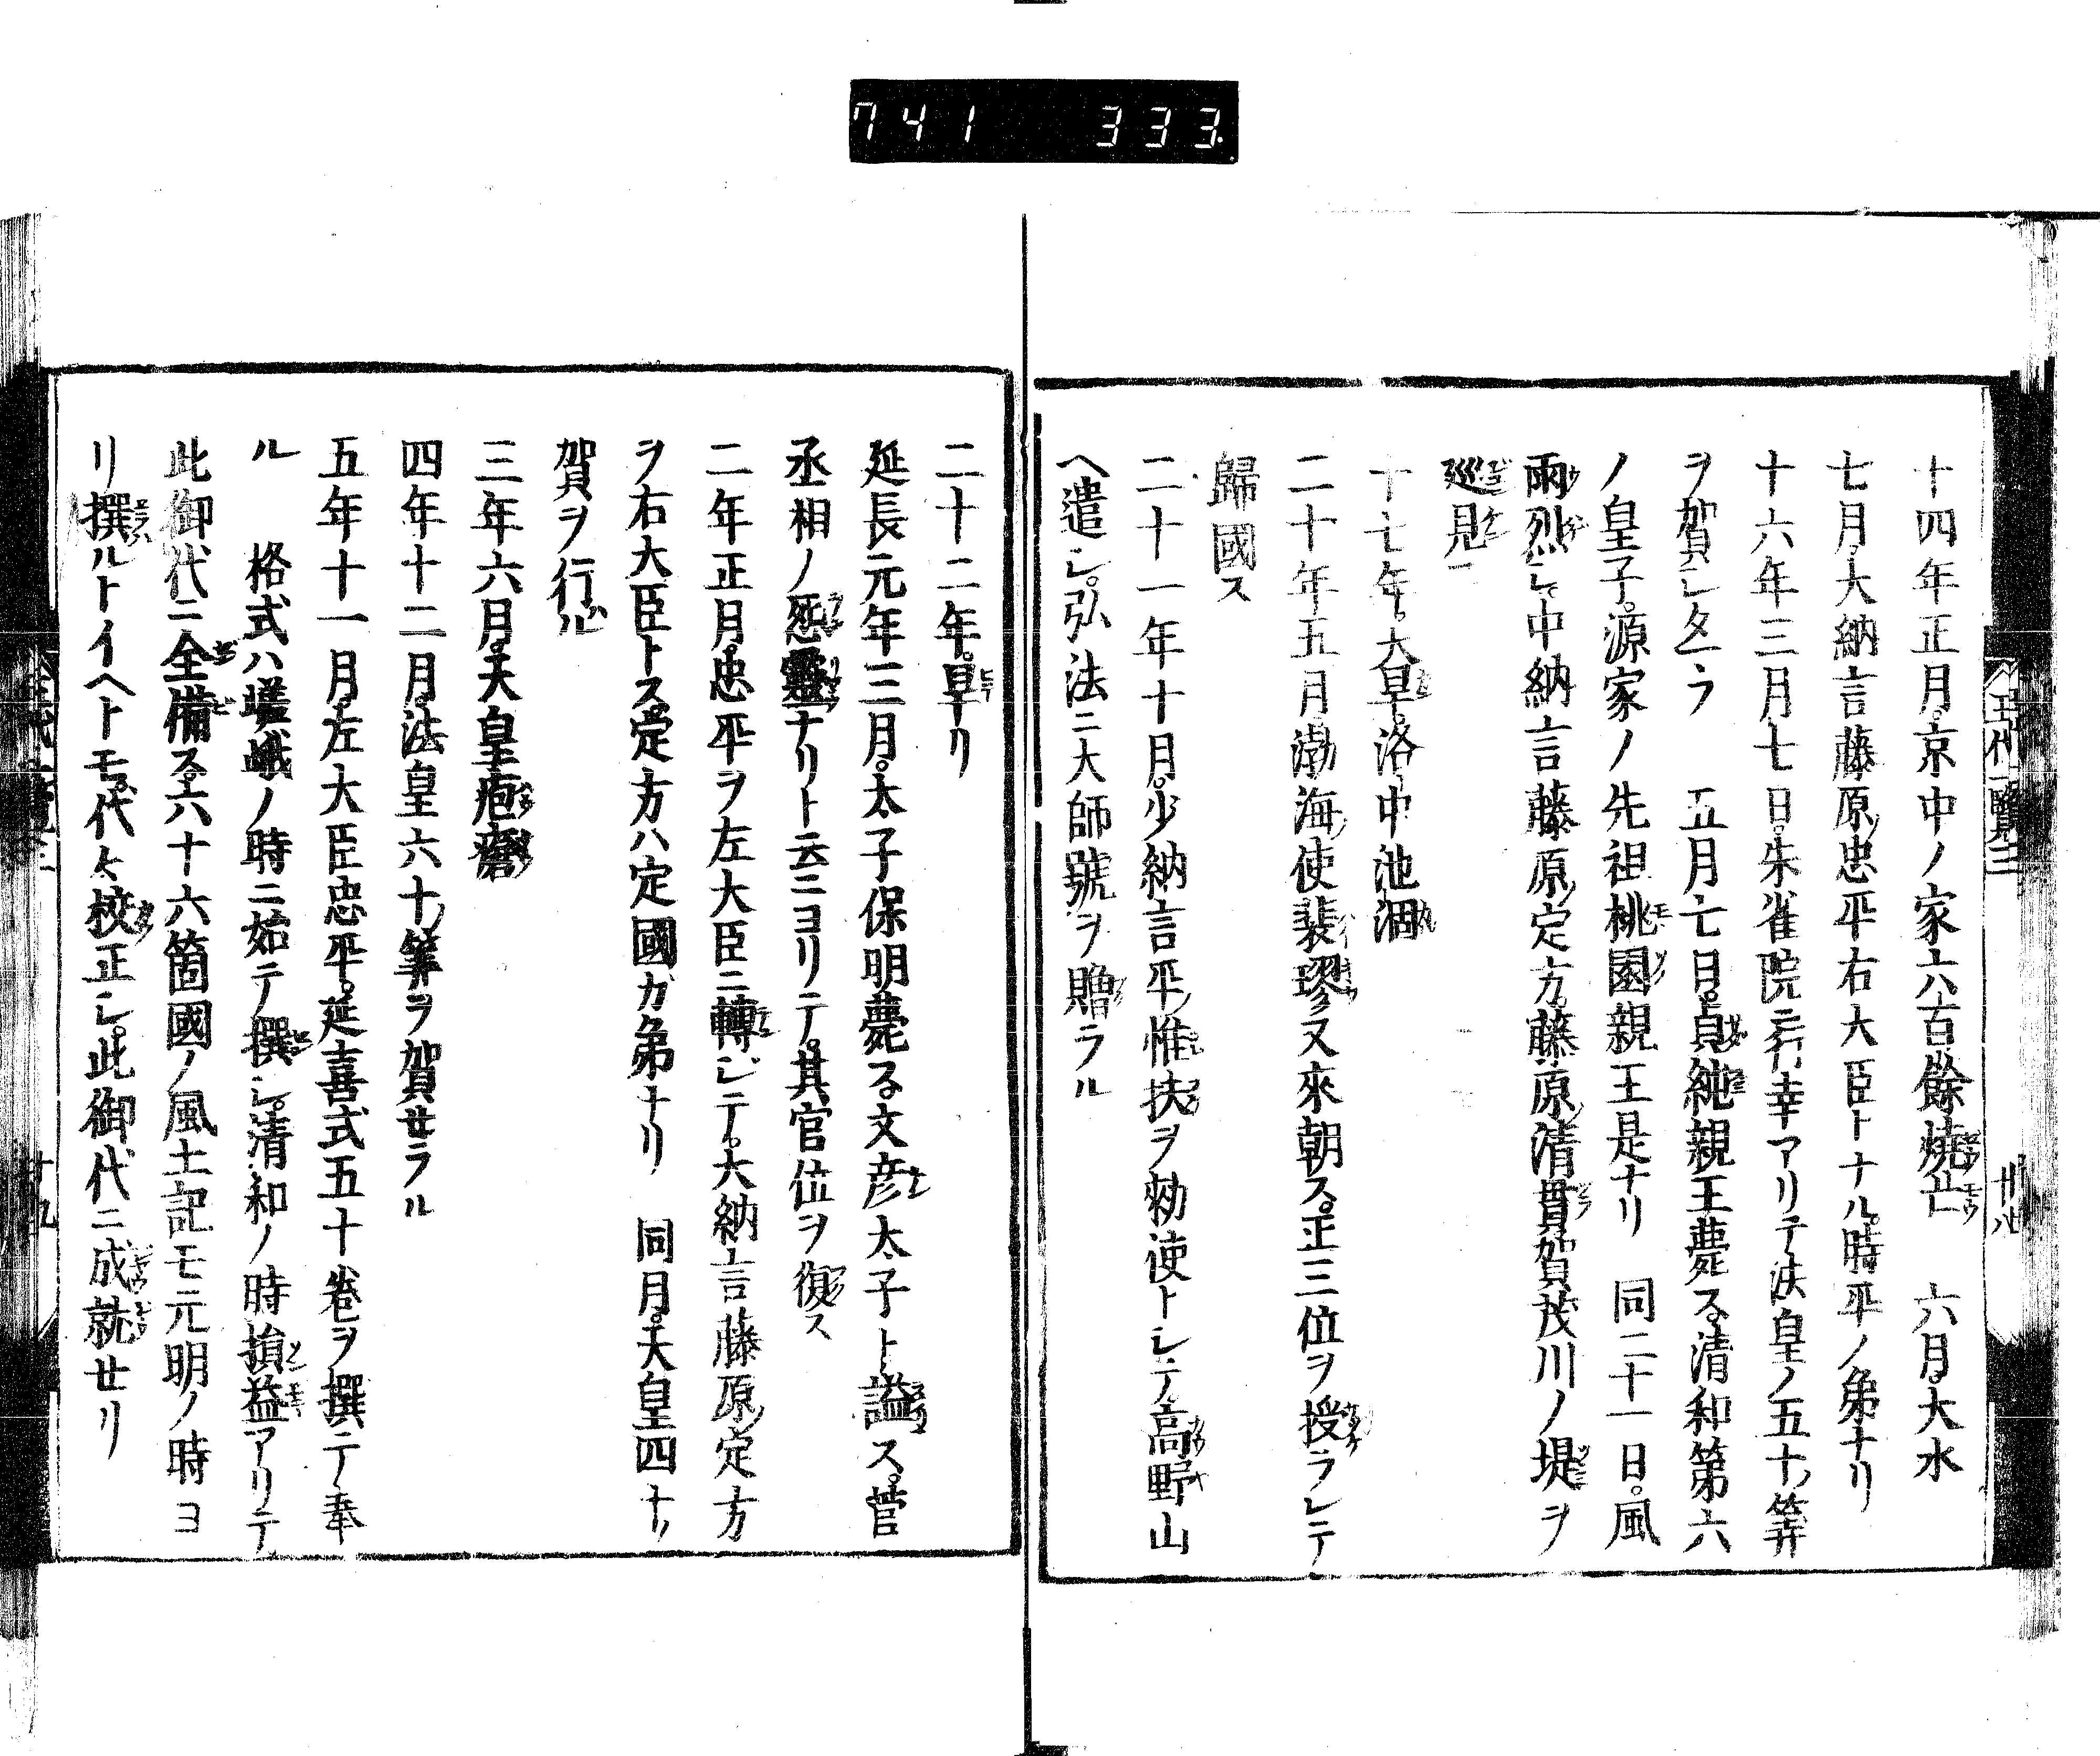 741 333.
十四年正月。京中ノ家六百餘燒亡　六月。大水
七月。大納言藤原ノ忠平右大臣トナル。時平ノ弟ナリ
十六年三月七日。朱雀院ニ行幸アリテ法皇ノ五十ノ筭
ヲ賀シタマフ　五月七日。貞純親王薨ス。清和第六
ノ皇子。源家ノ先祖桃園親王是ナリ　同二十一日。風
雨烈シ。中納言藤原ノ定方。藤原ノ清貫賀茂川ノ堤ヲ
巡見ス
十七年。大旱。洛中池涸
二十年五月。渤海ノ使裴璆又來朝ス。正三位ヲ授ラレテ
歸國ス
二十一年十月。少納言平ノ惟扶ヲ勅使トシテ。高野山
ヘ遣シ。弘法ニ大師號ヲ贈ラル
王代一覽三
二十二年。旱リ
延長元年三月。太子保明薨ス。文彦太子ト謚ス。菅
丞相ノ怨靈ナリト云ニヨリテ。其官位ヲ復ス
二年正月。忠平ヲ左大臣ニ轉ジテ。大納言藤原ノ定方
ヲ右大臣トス。定方ハ定國ガ弟ナリ　同月。天皇四十ノ
賀ヲ行ル
三年六月。天皇疱瘡
四年十二月。法皇六十ノ筭ヲ賀セラル
五年十一月。左大臣忠平。延喜式五十卷ヲ撰テ奉
ル　格式ハ嵯峨ノ時ニ始テ撰シ。清和ノ時損益アリテ
此御代ニ全備ス。六十六箇國ノ風土記モ元明ノ時ヨ
リ撰ルトイヘトモ。代々校正シ。此御代ニ成就セリ
十九